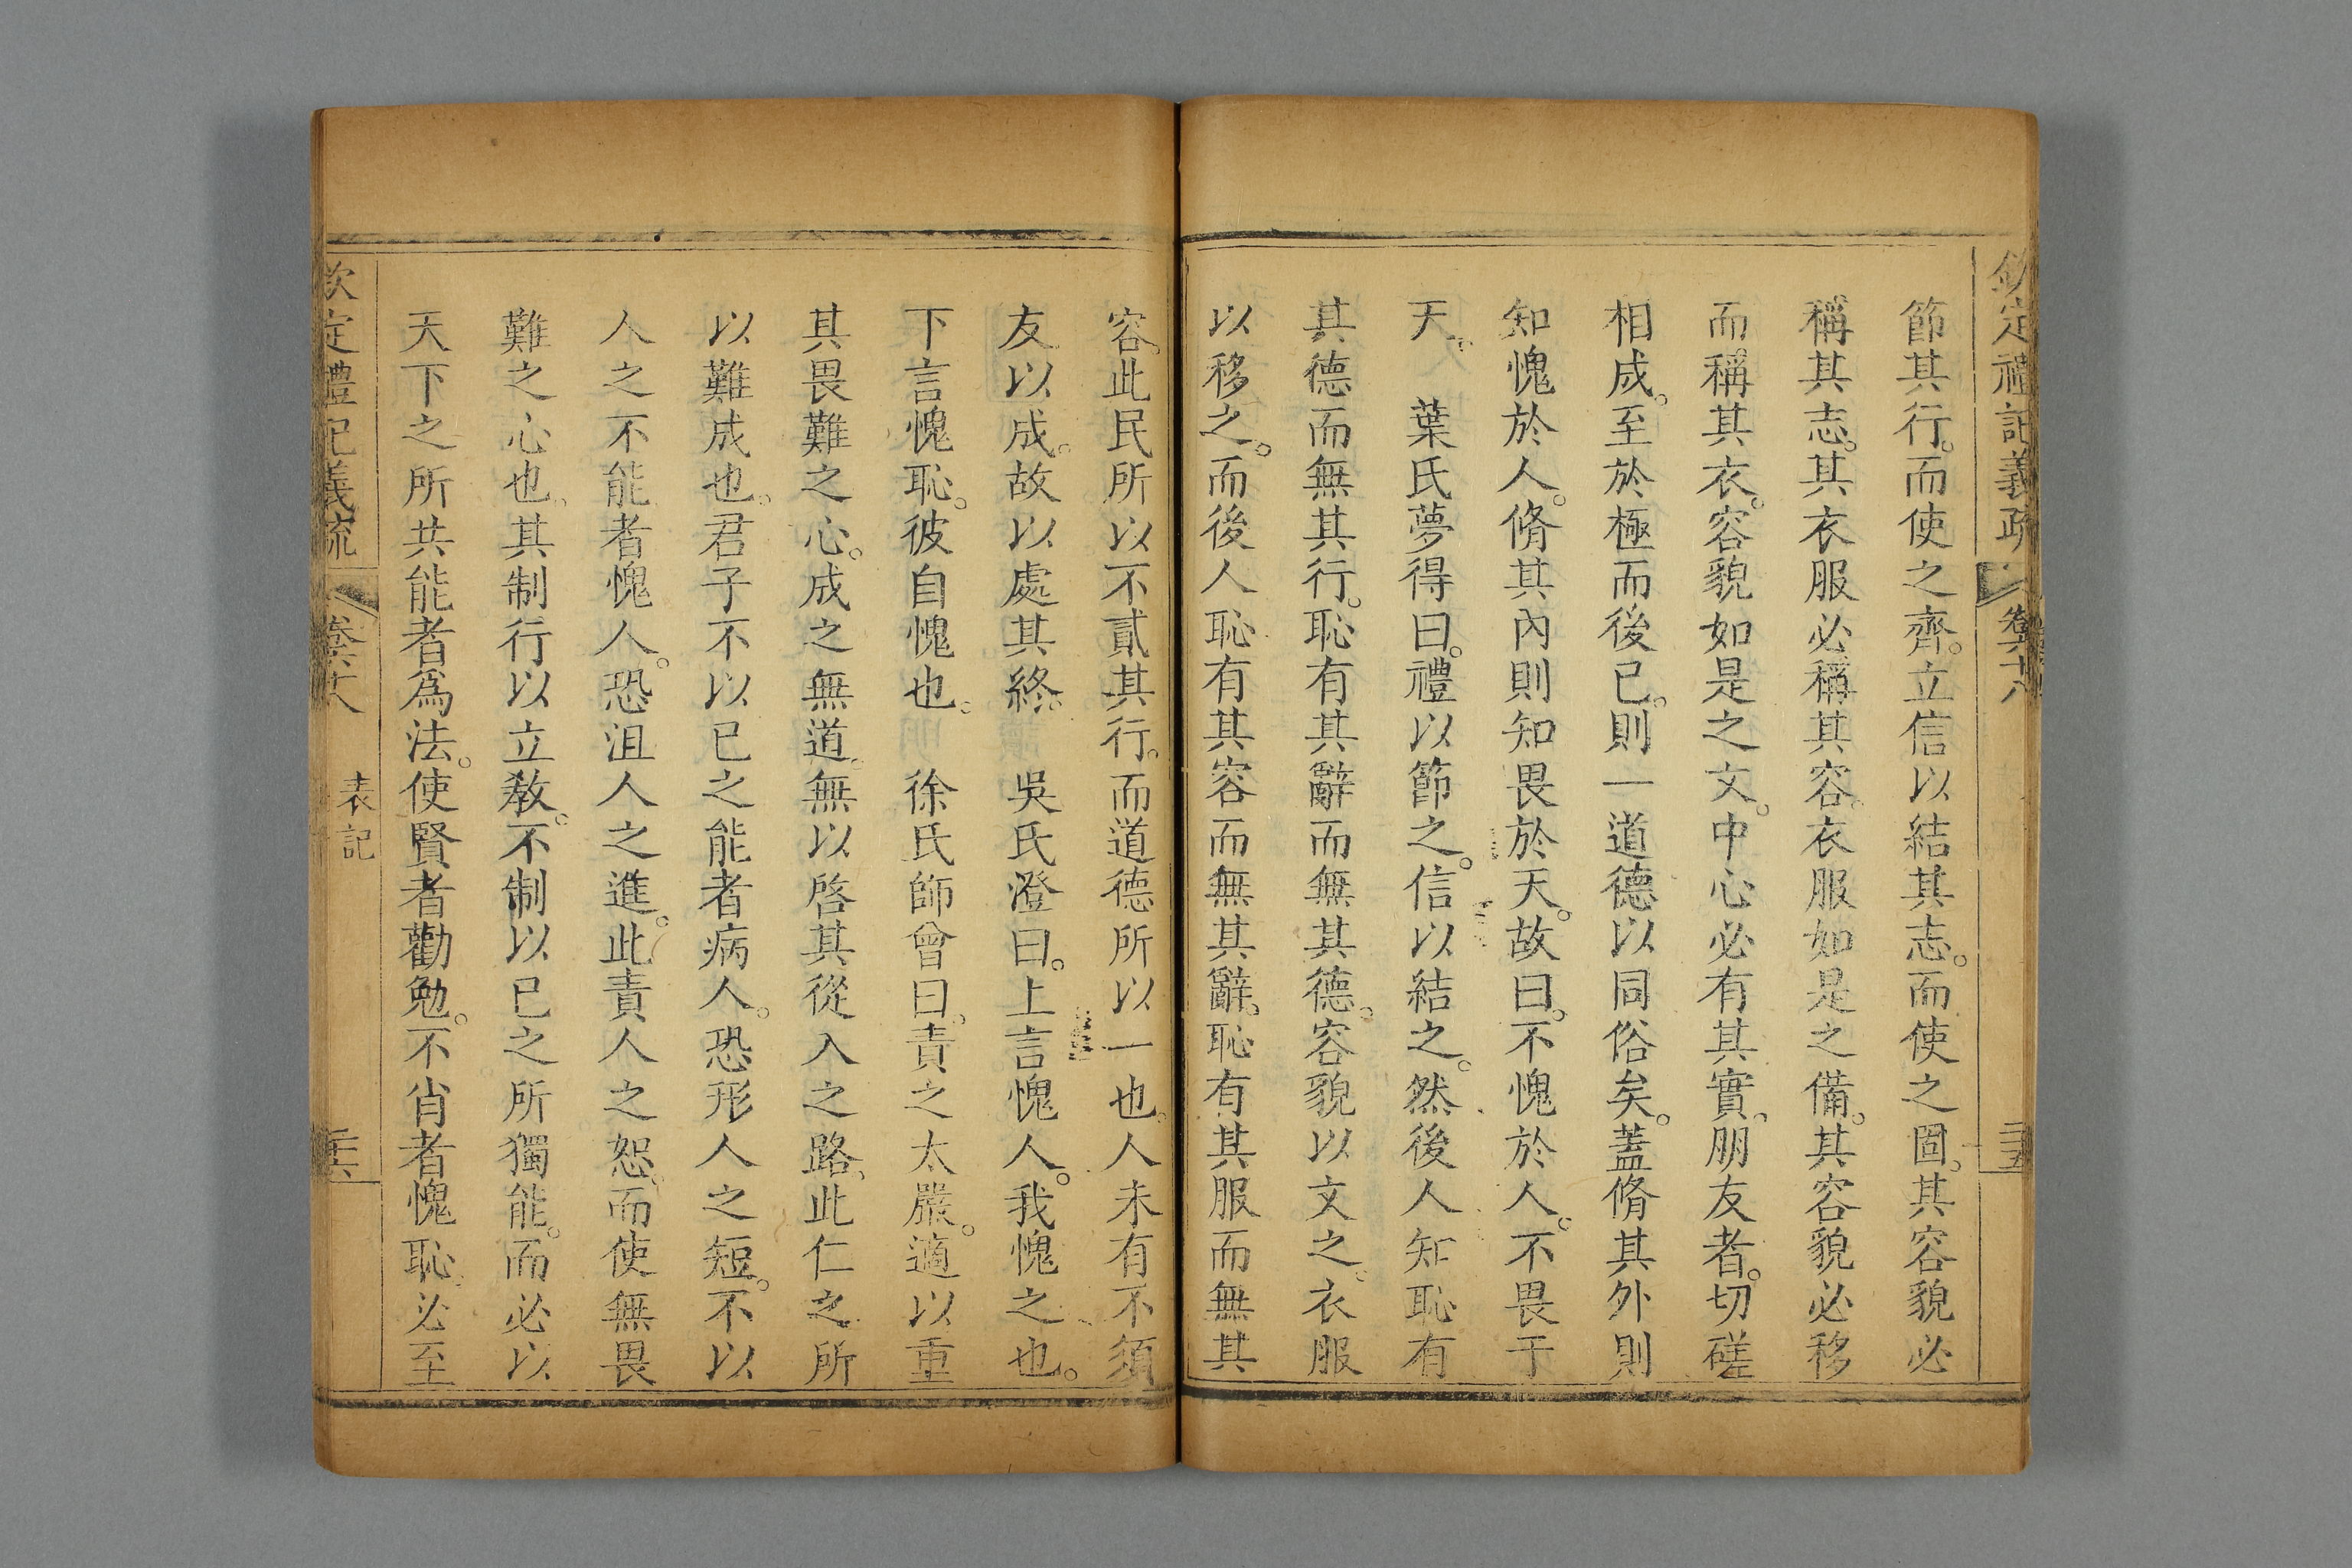 欽定禮記義疏 卷六十八 三十五
節其行。而使之齊。立信以結其志。而使之固。其容貌必
稱其志。其衣服必稱其容。衣服如是之備。其容貌必移
而。稱其衣。容貌如是之文。中心必有其實。朋友者。切磋
相成。至於極而後已。則一道德以同俗矣。蓋脩其外則
知愧於人。脩其內則知畏於天。故曰。不愧於人。不畏于
天。 葉氏夢得曰。禮以節之。信以結之。然後人知恥有
其德而無其行。恥有其辭而無其德。容貌以文之。衣服
以移之。而後人恥有其容而無其辭。恥有其服而無其
容。此民所以不貳其行。而道德所以一也。人未有不須
友以成。故以處其終。 吳氏澄曰。上言愧人。我愧之也。
下言愧恥。彼自愧也。 徐氏師曾曰。責之太嚴。適以重
其畏難之心。成之無道。無以啓其從入之路。此仁之所
以難成也。君子不以已之能者病人。恐形人之短。不以
人之不能者愧人。恐沮人之進。此責人之恕。而使無畏
難之心也。其制行以立敎。不制以已之所獨能。而必以
天下之所共能者爲法。使賢者勸勉。不肖者愧恥。必至
欽定禮記義疏 卷六十八 表記 三十六